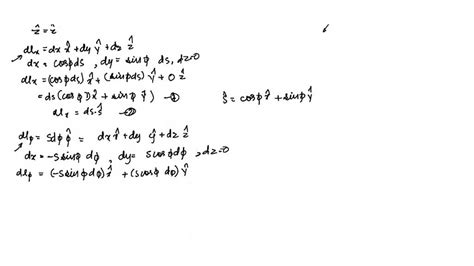 ẑ = ẑ
dlₓ = dx x̂ + dy ŷ + dz ẑ
dx = cosφ ds, dy = sinφ ds, dz=0
dlₓ = (cosφ ds) x̂ + (sinφ ds) ŷ + 0 ẑ
= ds (cosφ x̂ + sinφ ŷ) — ①
ŝ = cosφ x̂ + sinφ ŷ
dlₓ = ds·ŝ — ②
dlᵩ = s dφ φ̂ = dx x̂ + dy ŷ + dz ẑ
dx = -s sinφ dφ, dy = s cosφ dφ, dz=0
dlᵩ = (-s sinφ dφ) x̂ + (s cosφ dφ) ŷ